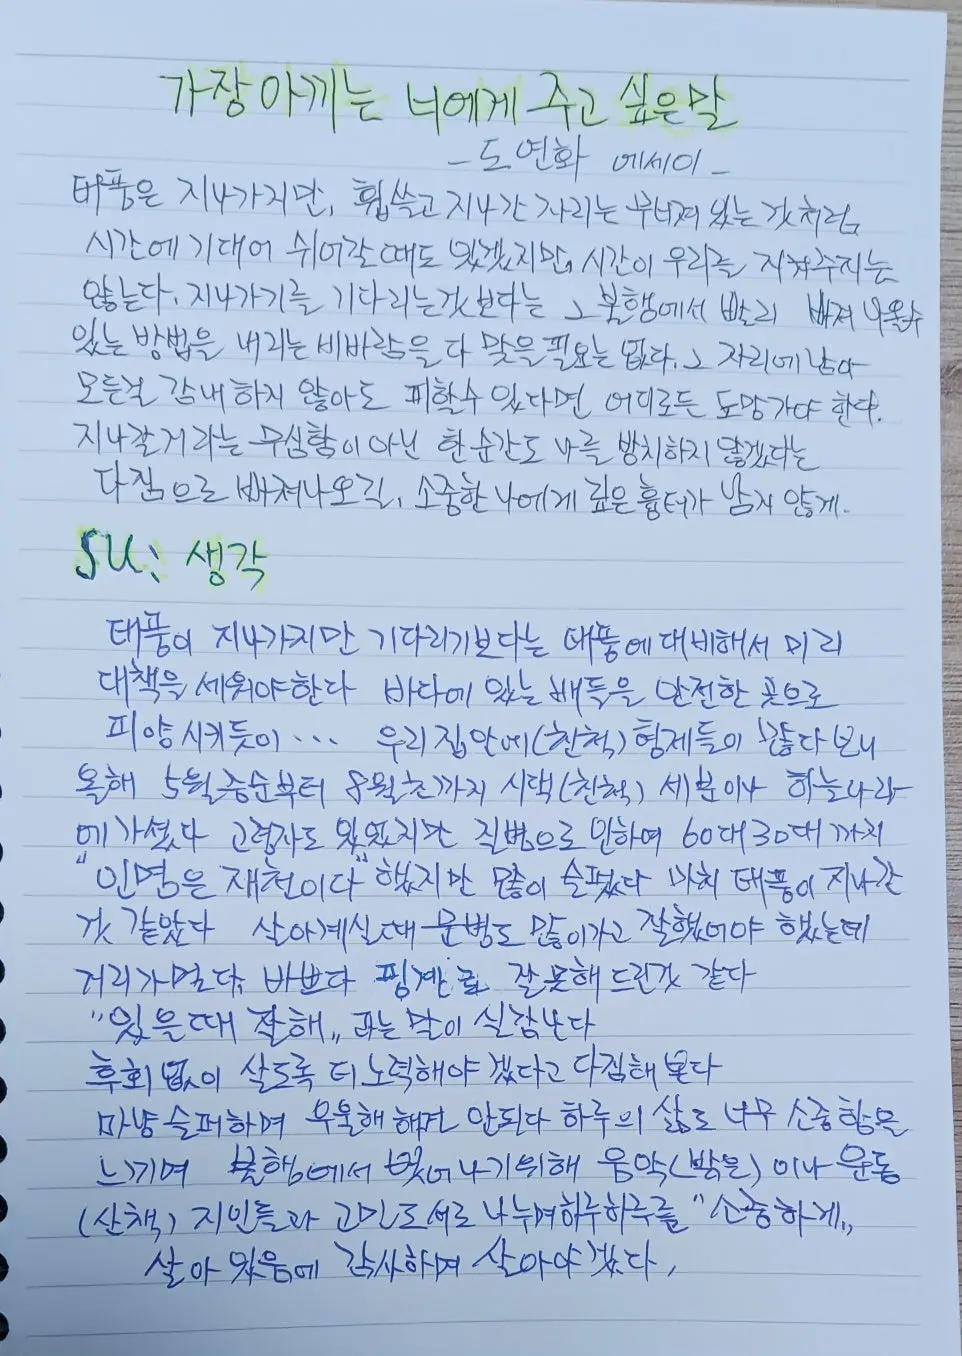 가장 아끼는 너에게 주고 싶은말
- 도연화 에세이 -
태풍은 지나가지만, 휩쓸고 지나간 자리는 무너져 있는 것처럼
시간에 기대어 쉬어갈 때도 있겠지만, 시간이 우리를 지켜주지는
않는다. 지나가기를 기다리는것 보다는 그 불행에서 빨리 빠져 나올수
있는 방법을 내리는 비바람을 다 맞을 필요는 없다. 그 자리에 남아
모든걸 감내하지 않아도 피할수 있다면 어디로든 도망가야 한다.
지나갈거라는 무심함이 아닌 한순간도 나를 방치하지 않겠다는
다짐으로 빠져나오길, 소중한 나에게 깊은 흉터가 남지 않게.
SU: 생각
태풍이 지나가지만 기다리기보다는 태풍에 대비해서 미리
대책을 세워야한다 바다에 있는 배들을 안전한 곳으로
피양시키듯이... 우리집안에(친척) 형제들이 많다보니
올해 5월중순부터 8월초까지 시댁(친척) 세분이나 하늘나라
에가셨다 고령자도 있었지만 질병으로 인하여 60대30대까지
"인명은 재천이다" 했지만 많이 슬펐다 마치 태풍이 지나간
것 같았다 살아계실때 문병도 많이가고 잘했어야 했는데
거리가멀다, 바쁘다 핑계로 잘못해 드린것 같다
"있을때 잘해" 라는 말이 실감난다
후회없이 살도록 더 노력해야 겠다고 다짐해 본다
마냥슬퍼하며 우울해 해도 안된다 하루의 삶도 너무 소중함을
느끼며 불행에서 벗어나기위해 음악(밝은)이나 운동
(산책) 지인들과 고민도 서로 나누며하루하루를 "소중하게"
살아 있음에 감사하며 살아야겠다.